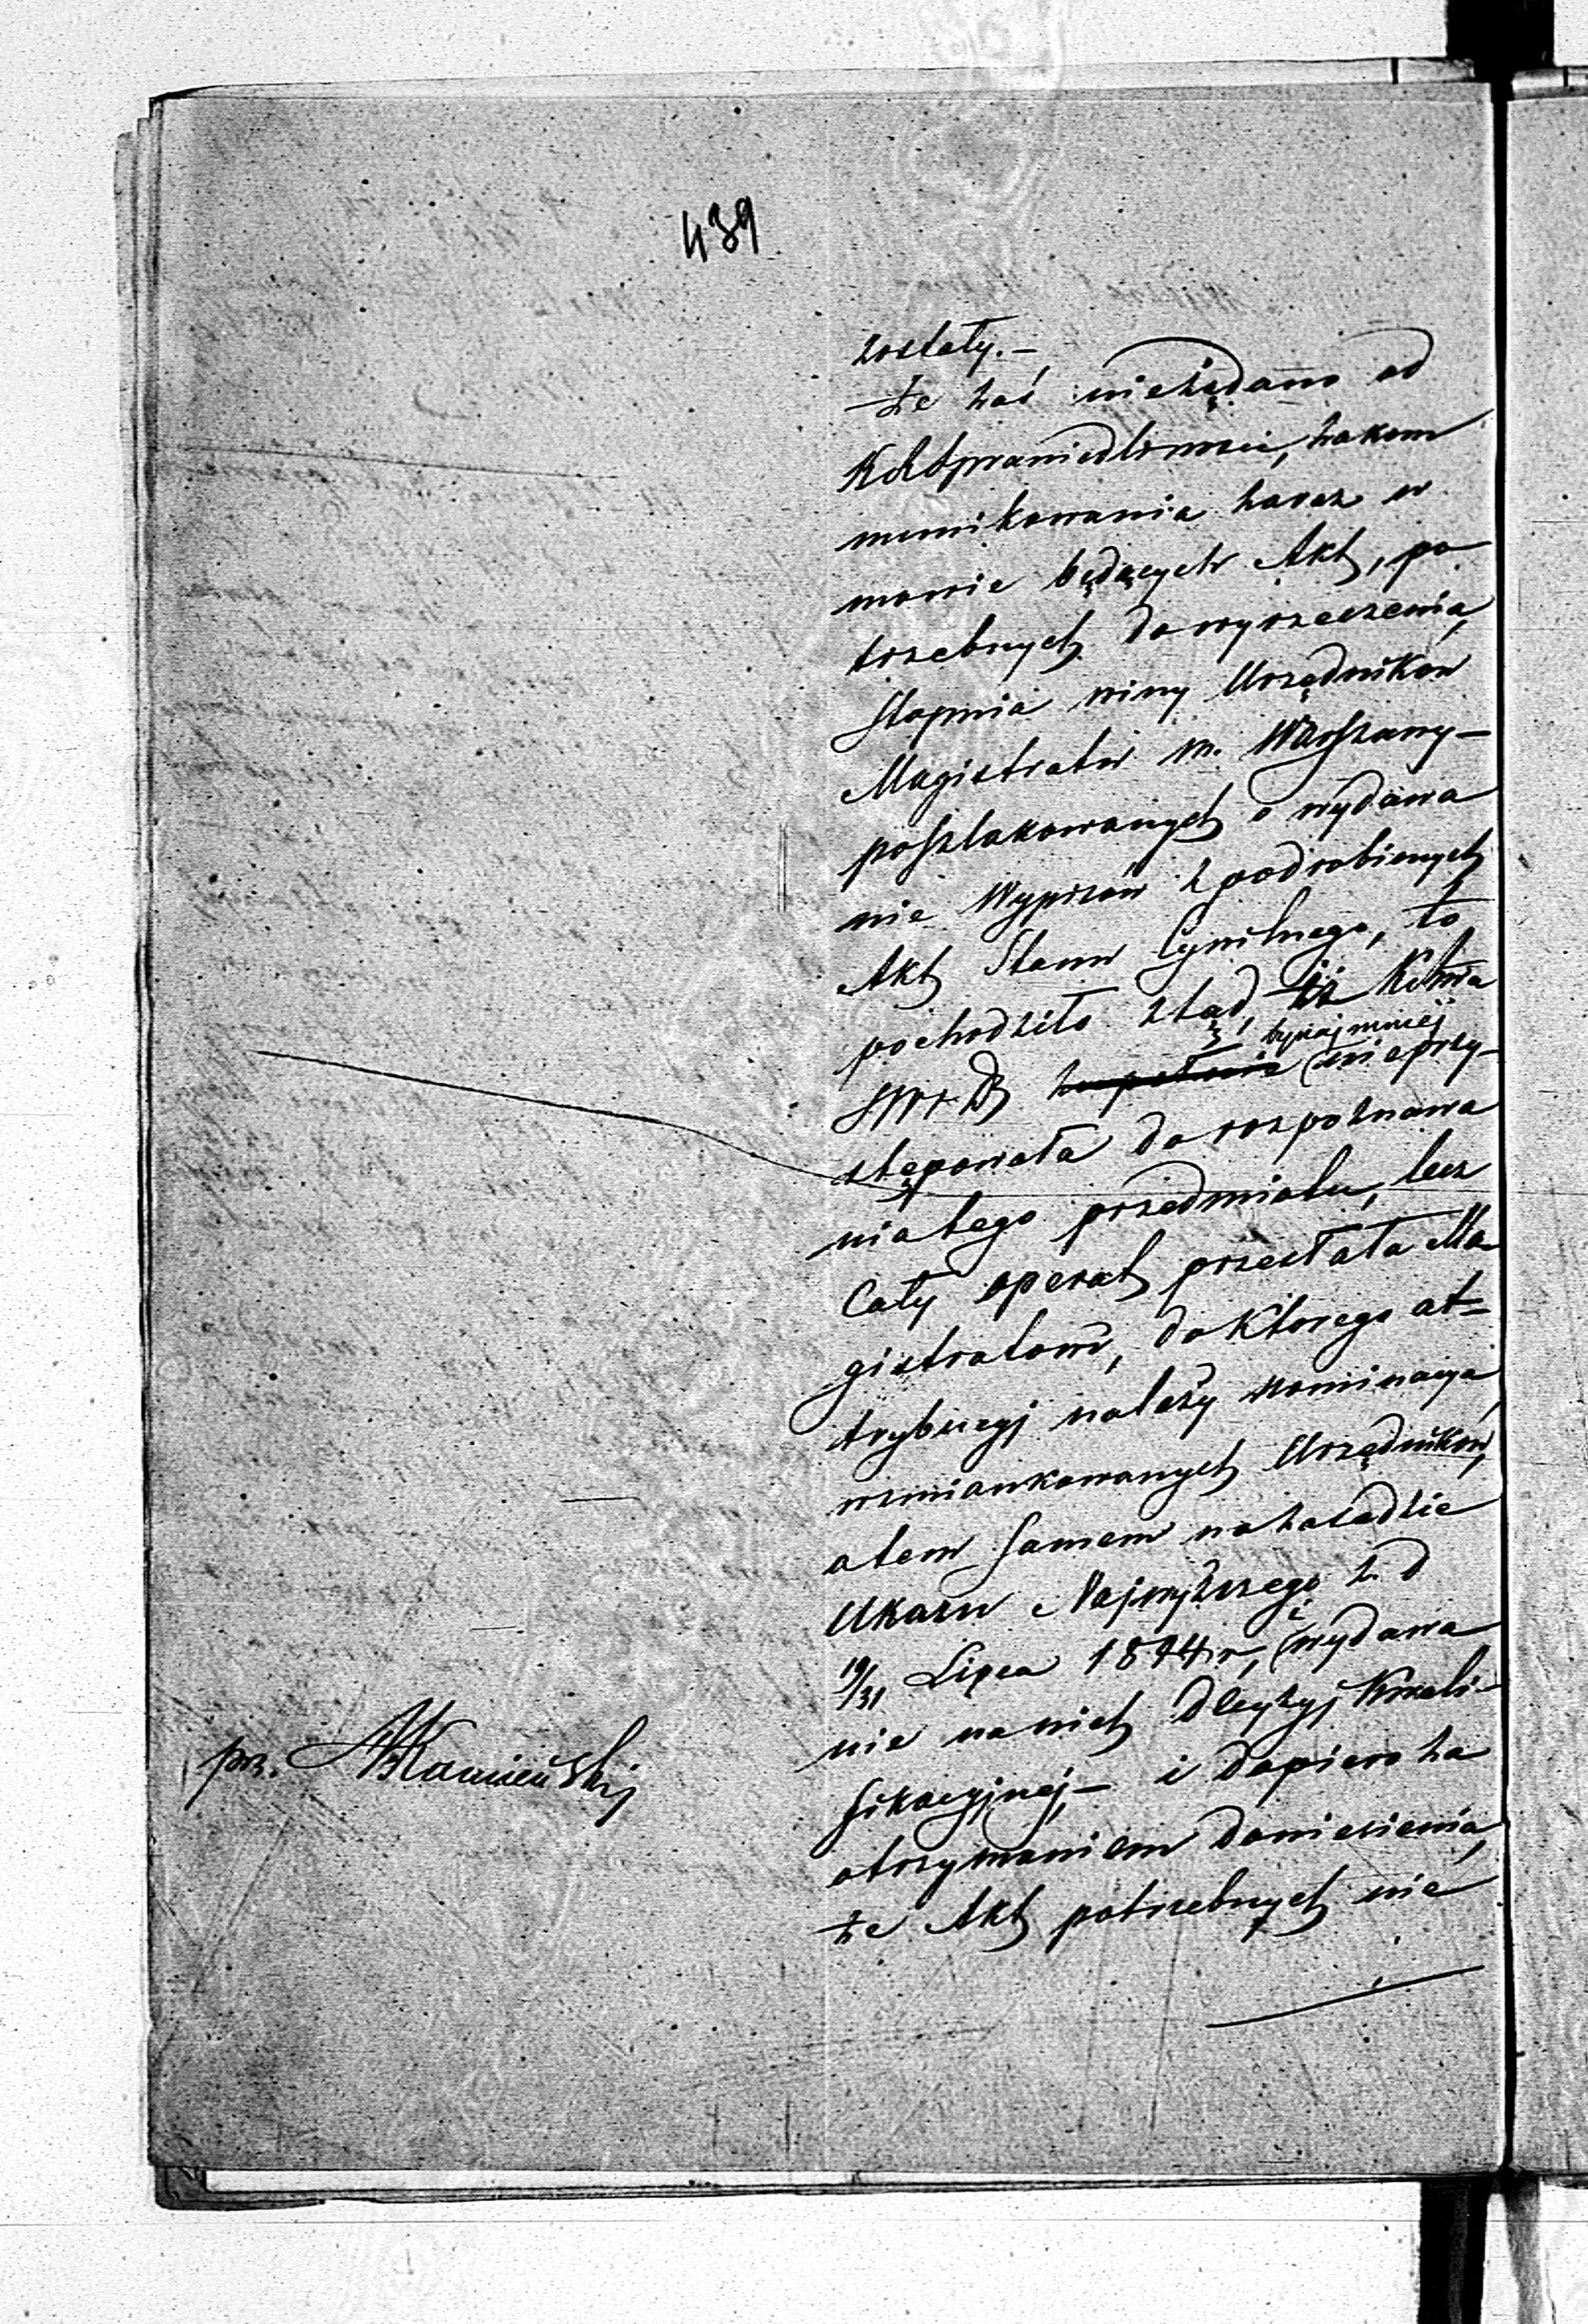 439
zostały. –
że zaś nieżądano od
K R Sprawiedliwości, zakom
munikowania zaraz w
mowie będących Akt, po
trzebnych do wyrzeczenia
Stopnia winy Urzędników
Magistratu m. Warszawy –
poszlakowanych o wydawa
nie Wypisów z podrobionych
Akt Stanu Cywilnego, to
pochodziło ztąd, iż Kom̃a
bynajmniej
SW i D zupełnie nieprzy-
stępowała do rozpoznawa
nia tego przedmiotu, lecz
Cały operat przesłała Ma
gistratowi, do którego at-
trybucyj należy nominacya
wzmiankowanych Urzędników,
a tem samem na zasadzie
Ukazu Najwyższego z d
19/31 Lipca 1844 r, i wydawa
nie na nich Decyzyj Kwali-
fikacyjnej, – i dopiero za
otrzymaniem doniesienia,
że Akt potrzebnych nie
pr. Kamieńskij